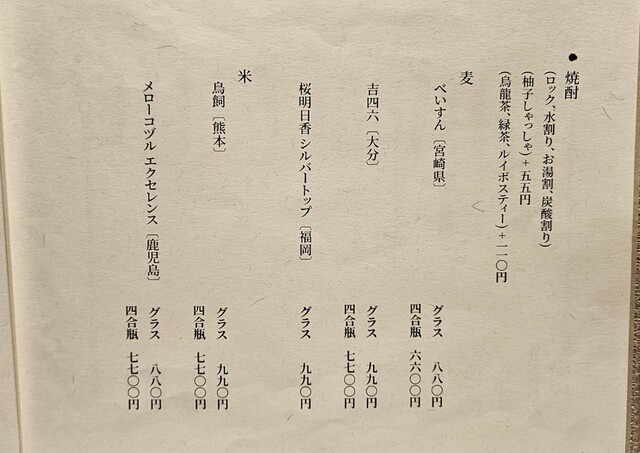 ● 焼酎
(ロック、水割り、お湯割、炭酸割り)
(柚子しゃっしゃ)+五五円
(烏龍茶、緑茶、ルイボスティー)+一一〇円
麦
べいすん〔宮崎県〕
グラス 八八〇円
四合瓶 六六〇〇円
吉四六〔大分〕
グラス 九九〇円
四合瓶 七七〇〇円
桜明日香 シルバートップ〔福岡〕
グラス 九九〇円
米
鳥飼〔熊本〕
グラス 九九〇円
四合瓶 七七〇〇円
メローコヅル エクセレンス〔鹿児島〕
グラス 八八〇円
四合瓶 七七〇〇円